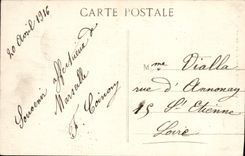 CARTE POSTALE
20 Avril 1916
Souvenir affectueux de
Marseille
F.
Mme Vialla
rue d'Annonay
25 St Etienne
Loire